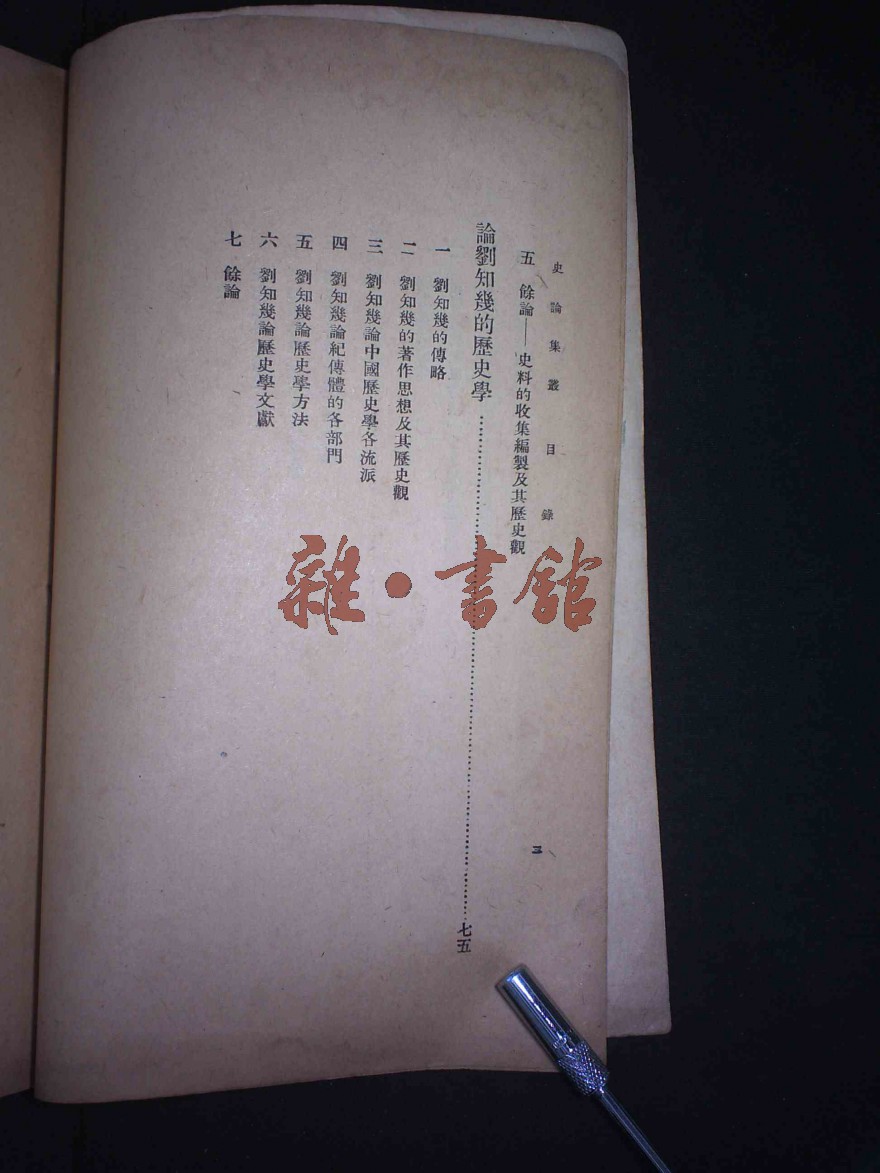 史論集叢　目錄
三
五　餘論——史料的收集編製及其歷史觀
論劉知幾的歷史學……七五
一　劉知幾的傳略
二　劉知幾的著作思想及其歷史觀
三　劉知幾論中國歷史學各流派
四　劉知幾論紀傳體的各部門
五　劉知幾論歷史學方法
六　劉知幾論歷史學文獻
七　餘論
雜·書館